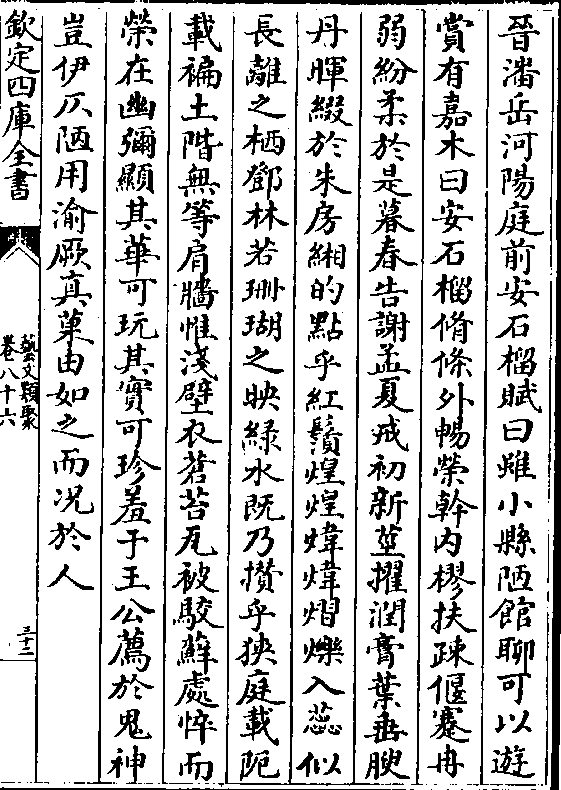 晉潘岳河陽庭前安石榴賦曰雖小縣陋館聊可以遊
賞有嘉木曰安石榴脩條外暢榮幹内樛扶疎偃蹇冉
弱紛柔於是暮春告謝孟夏戒初新莖擢潤膏葉垂腴
丹暉綴於朱房緗的點乎紅鬚煌煌煒煒熠爍入蕊似
長離之栖鄧林若珊瑚之映緑水既乃攅乎狹庭載阨
載褊土階無等肩牆惟淺壁衣蒼苔瓦被駮蘚處悴而
榮在幽彌顯其華可玩其實可珍羞于王公薦於鬼神
豈伊仄陋用渝厥真菓由如之而况於人
欽定四庫全書
藝文類聚
卷八十六
三十二